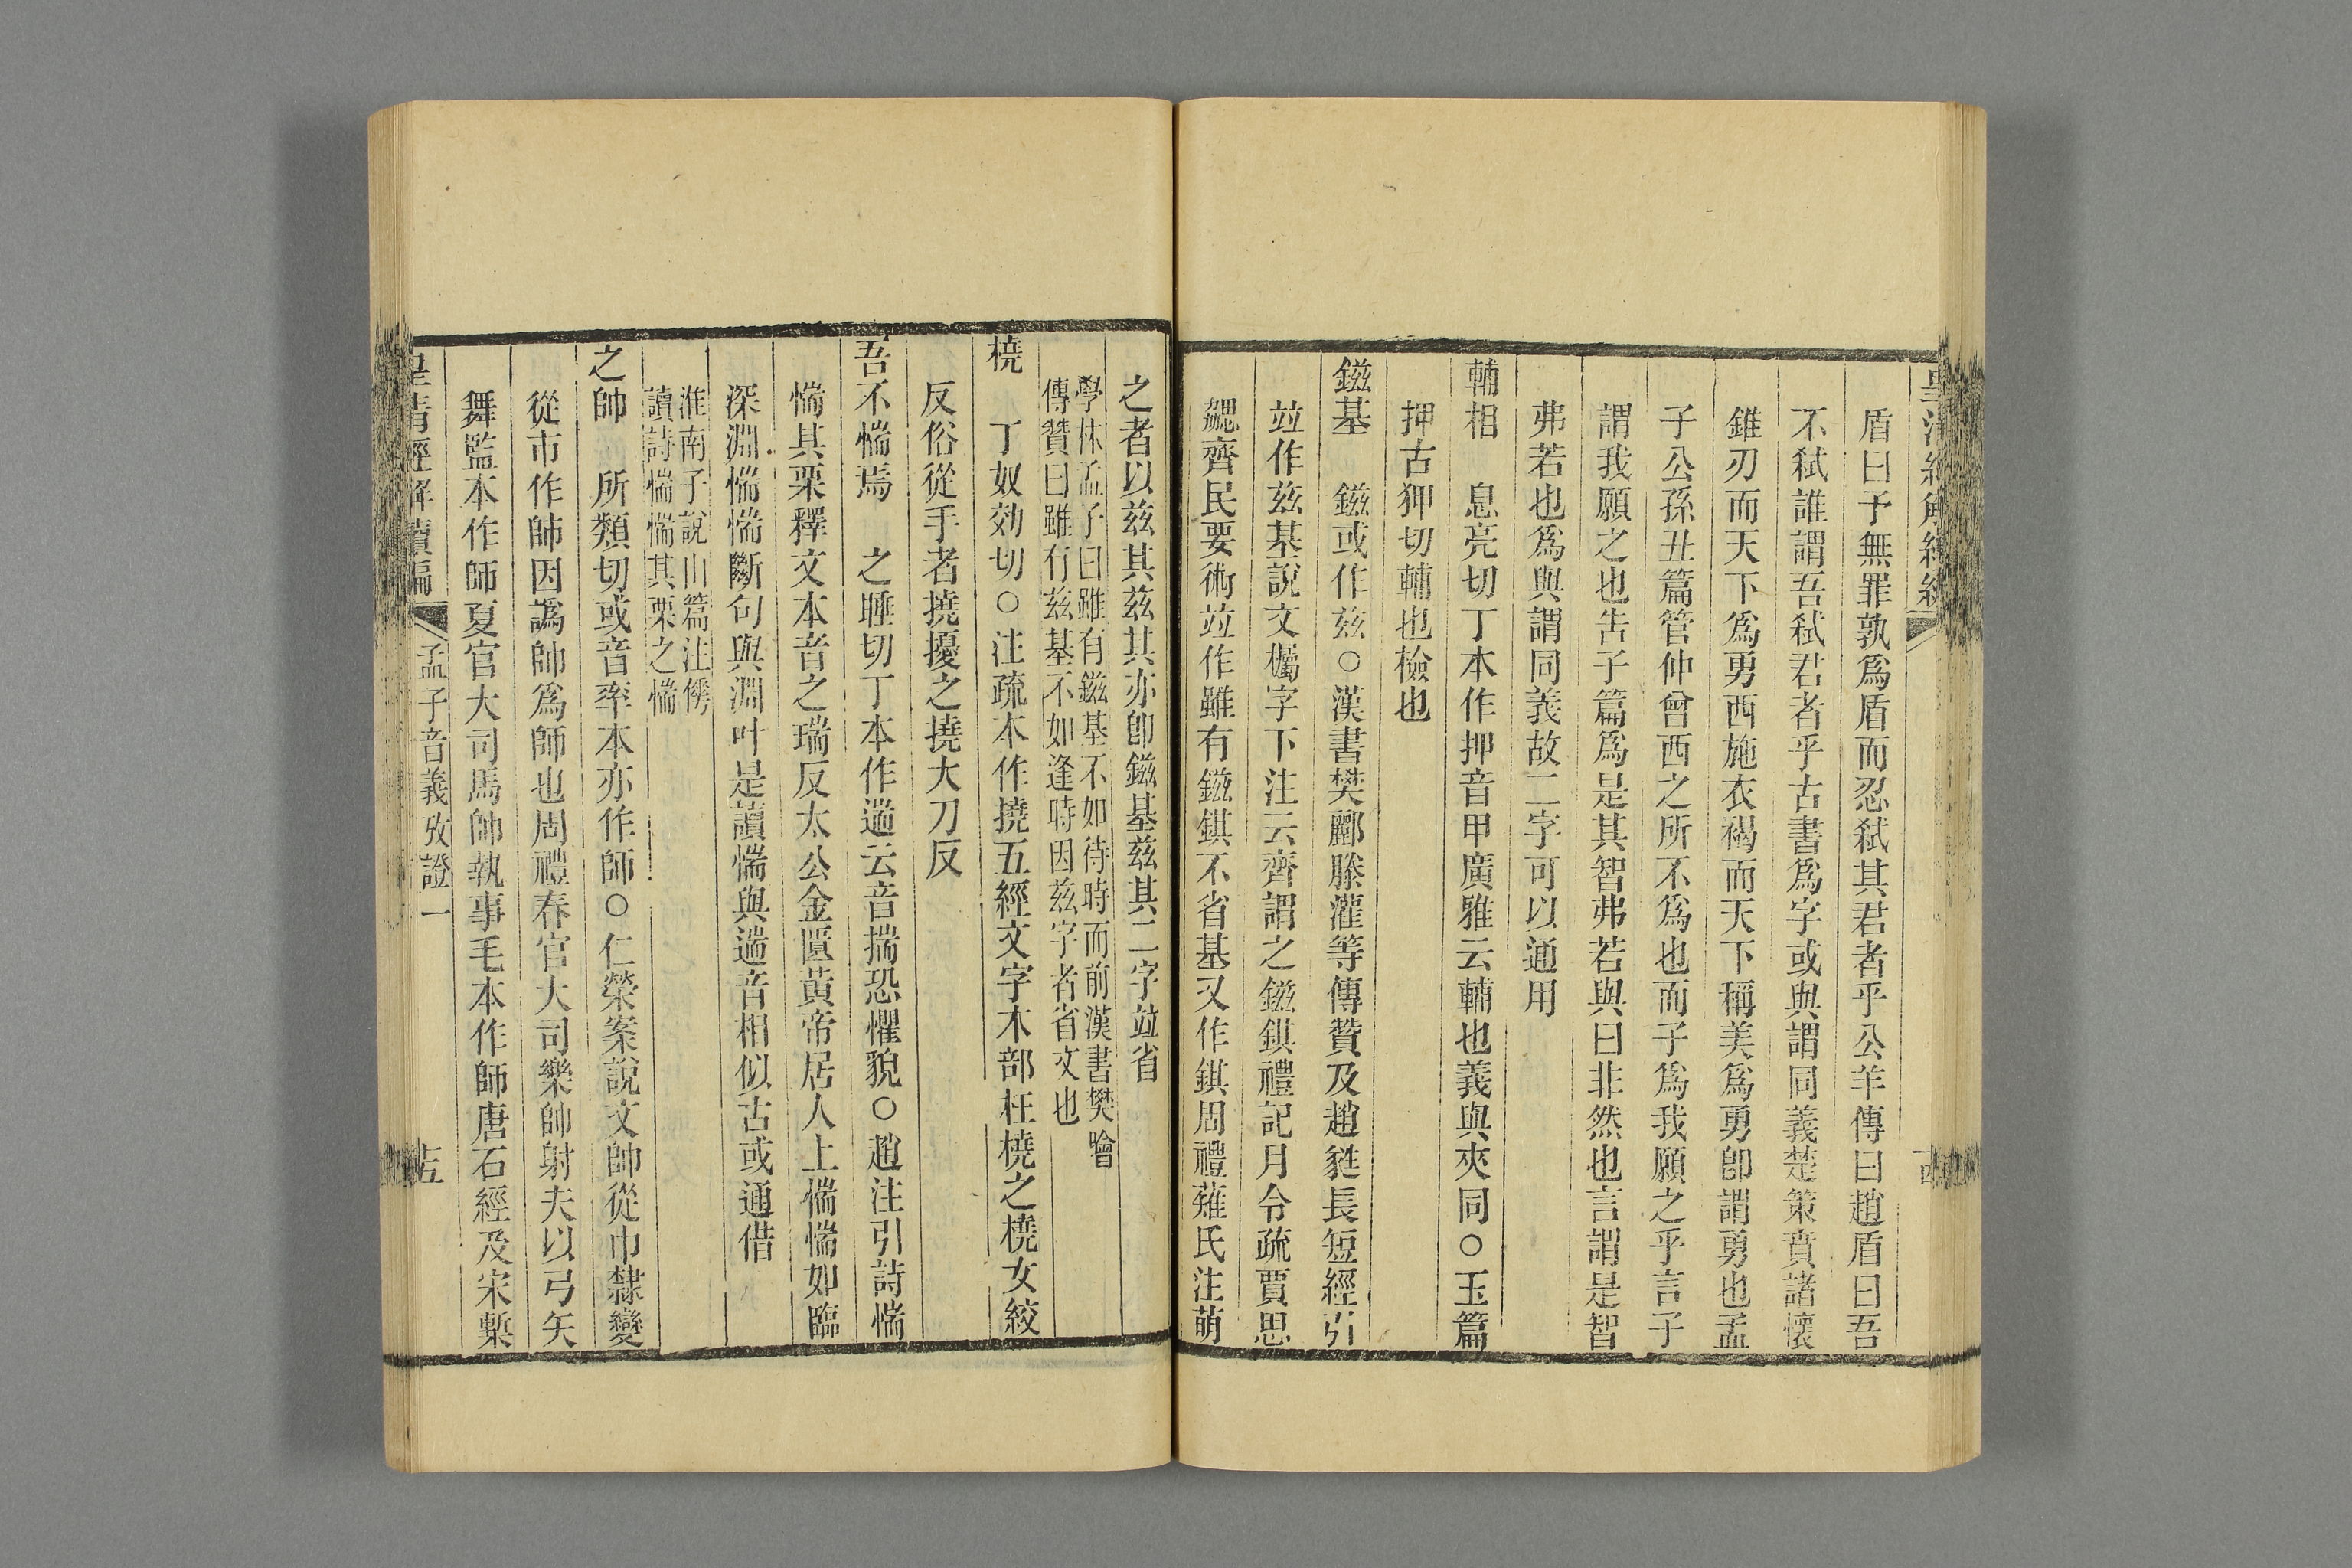 盾曰予無罪孰爲盾而忍弑其君者乎公羊傳曰趙盾曰吾
不弑誰謂吾弑君者乎古書爲字或與謂同義楚策賁諸懷
錐刃而天下爲勇西施衣褐而天下稱美爲勇卽謂勇也孟
子公孫丑篇管仲曾西之所不爲也而子爲我願之乎言子
謂我願之也告子篇爲是其智弗若與曰非然也言謂是智
弗若也爲與謂同義故二字可以通用
輔相 息亮切丁本作押音甲廣雅云輔也義與夾同○玉篇
押古狎切輔也檢也
鎡基 鎡或作玆○漢書樊酈滕灌等傳贊及趙蕤長短經引
竝作玆基說文欘字下注云齊謂之鎡錤禮記月令疏賈思
勰齊民要術竝作雖有鎡錤不省基又作錤周禮薙氏注萌
之者以玆其玆其亦卽鎡基玆其二字竝省
學林孟子曰雖有鎡基不如待時而前漢書樊噲
傳贊曰雖有玆基不如逢時因玆字者省文也
橈 丁奴効切○注疏本作撓五經文字木部枉橈之橈女絞
反俗從手者撓擾之撓大刀反
吾不惴焉 之睡切丁本作遄云音揣恐懼貌○趙注引詩惴
惴其栗釋文本音之瑞反太公金匱黃帝居人上惴惴如臨
深淵惴惴斷句與淵叶是讀惴與遄音相似古或通借
淮南子說山篇注㥬
讀詩惴惴其栗之惴
之帥 所類切或音率本亦作師○仁榮案說文帥從巾隸變
從市作師因譌帥爲師也周禮春官大司樂帥射夫以弓矢
舞監本作師夏官大司馬帥執事毛本作師唐石經及宋槧
皇清經解續編 孟子音義攷證一 十五